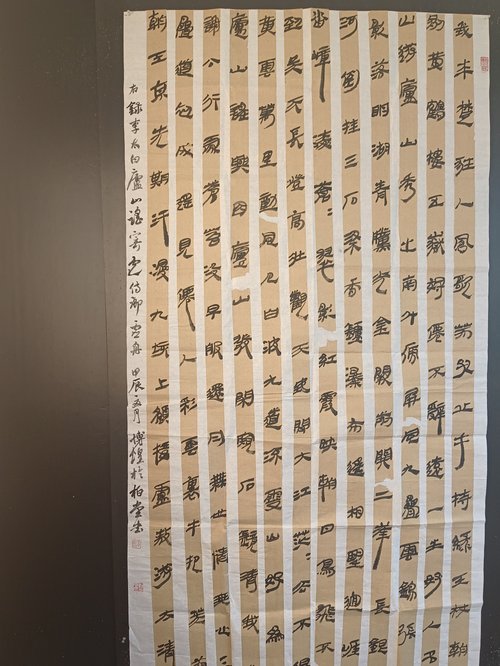 我本楚狂人鳳歌笑孔丘手持綠玉杖朝
別黃鶴樓五嶽尋仙不辭遠一生好入名
山遊廬山秀出南斗傍屏風九疊雲錦張
影落明湖青黛光金闕前開二峯長銀
河倒挂三石梁香爐瀑布遙相望迴崖
沓嶂凌蒼々翠影紅霞映朝日鳥飛不
到吳天長登高壯觀天地間大江茫々去不還
黃雲萬里動風色白波九道流雪山好為
廬山謠興因廬山發閑窺石鏡清我
謝公行處蒼苔沒早服還丹無世情琴心三
疊道初成遙見仙人彩雲裏手把芙蓉
朝玉京先期汗漫九垓上願接盧敖遊太清
右錄李太白廬山謠寄盧侍御虛舟甲辰五月傅煌於柏堂書